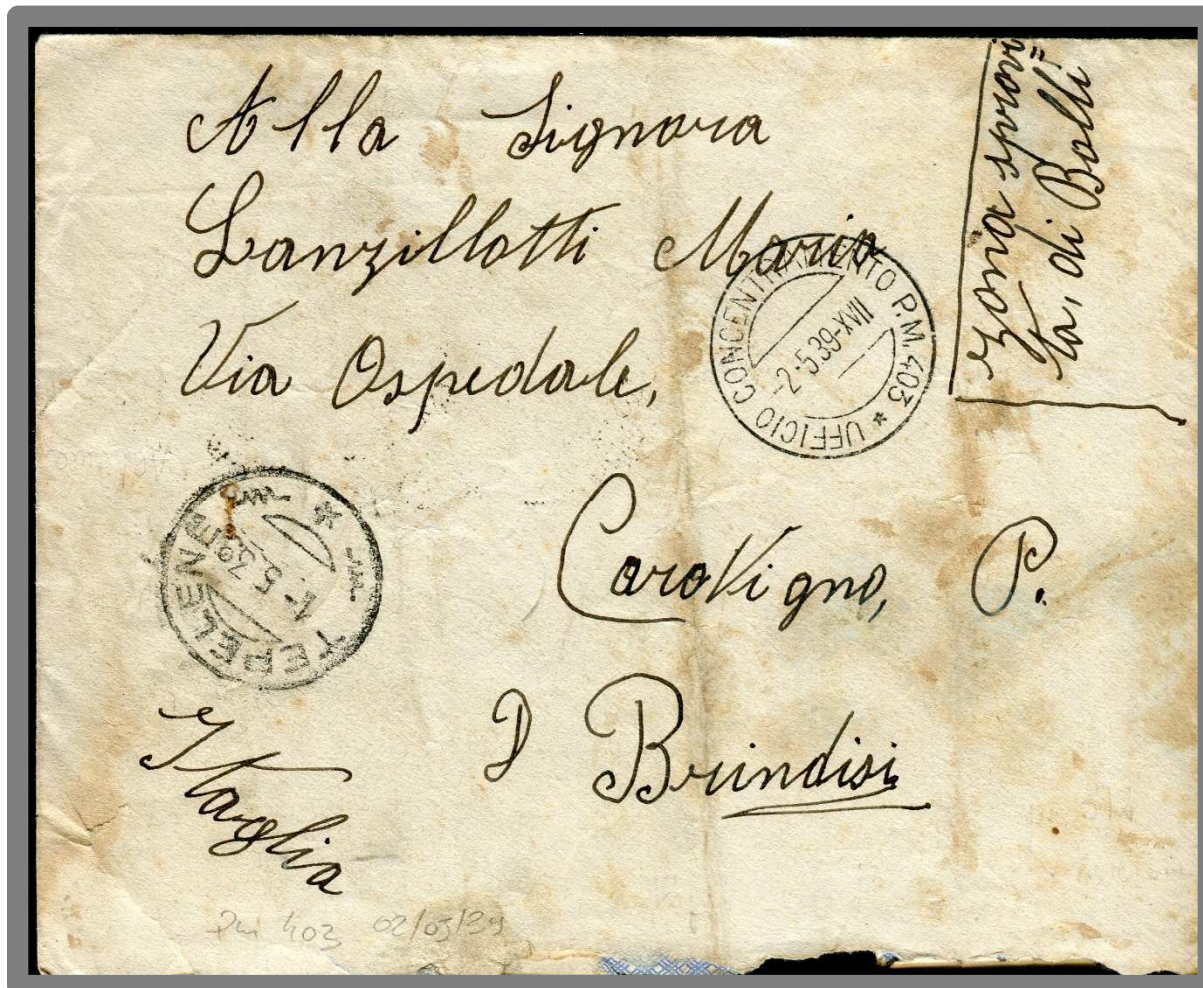 Alla Signora
Lanzillotti Maria
Via Ospedale,
Carovigno, P.
D Brindisi
Itaglia
zona sprovi=
ta, di Bolli
UFFICIO CONCENTRAMENTO P.M. 403 *
-2.5.39-XVII
TEPELENE *
1-5.39
Pm 403 02/05/39